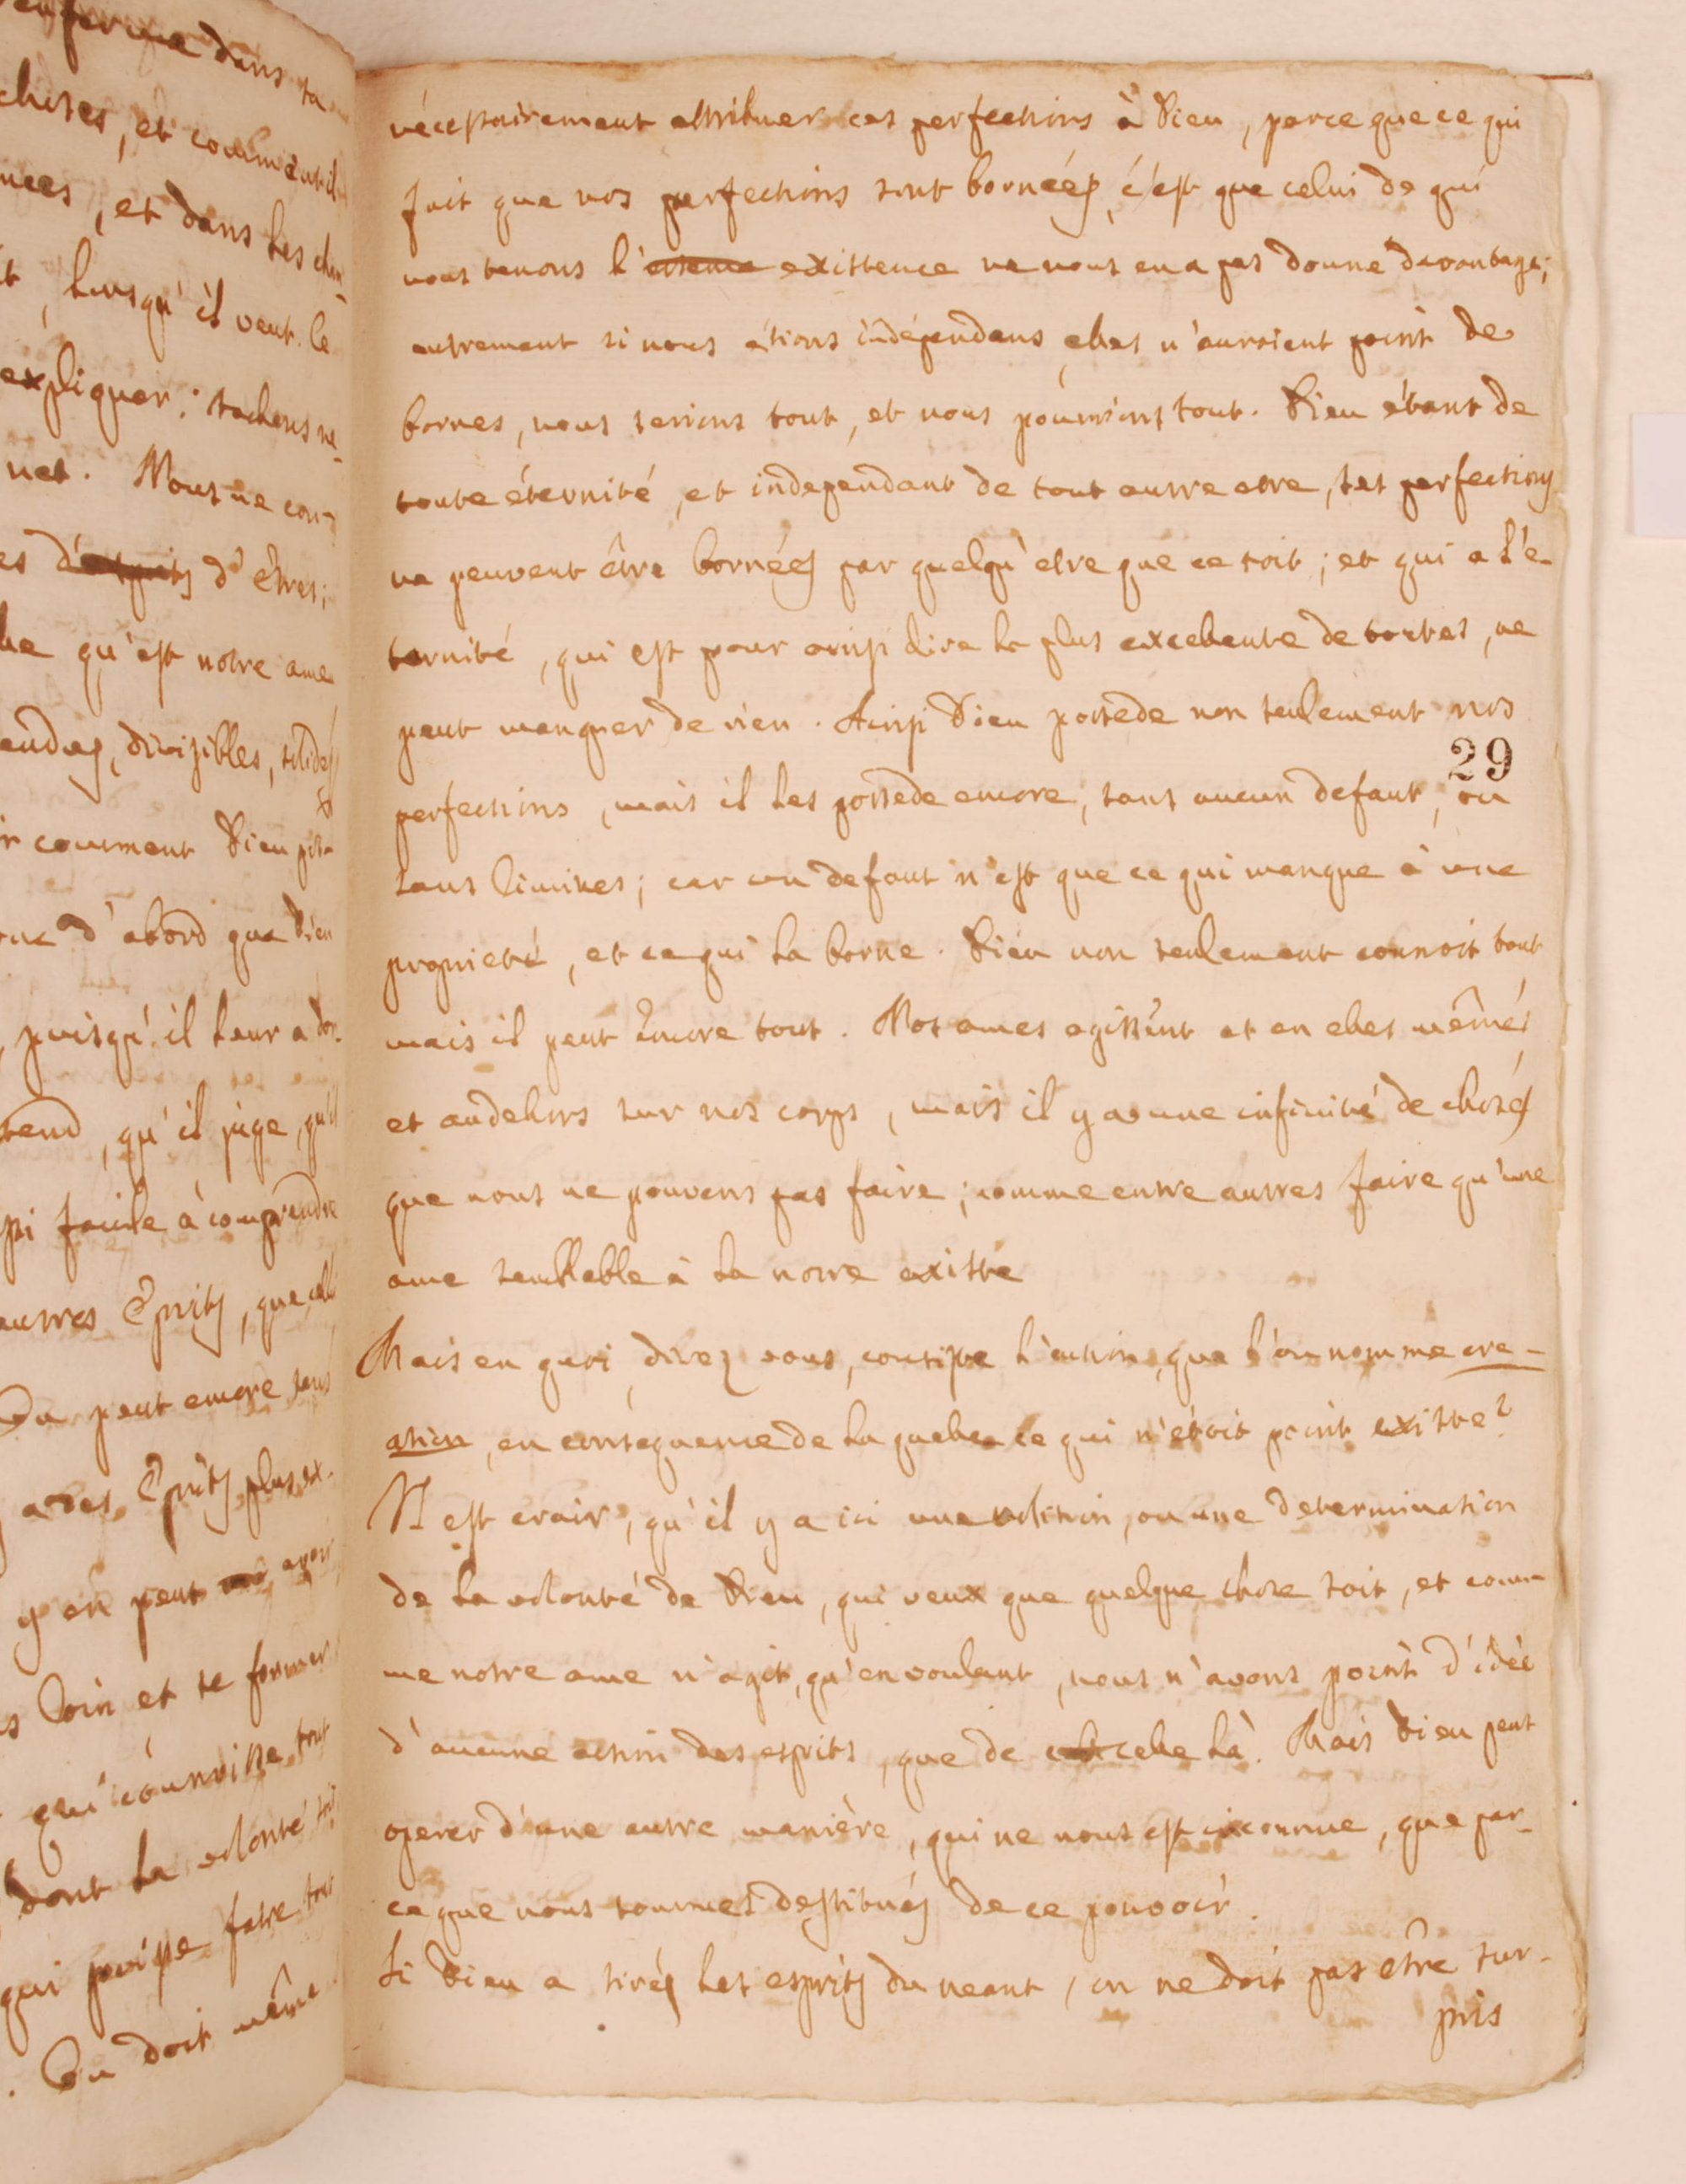 enferme dans ta
choses, et comme s'il
nces, et dans les cho
t, lorsqu'il veut le
expliquer; tachons ne
net. Nous ne con-
es d'esprits d'êtres;
he qu'est notre ame
endues, divisibles, solides
&
r comment Dieu pos-
onc d'abord que Dieu
, puisqu'il leur a don-
tend, qu'il juge, qu'il
ssi facile à comprendre
autres Esprits, que celle
On peut encore sans
a des Esprits plus ex-
y en peut avoir
s loin et se former
qui connoisse tout
dont la volonté soit
qui puisse faire tout
. On doit même
nécessairement attribuer ces perfections à Dieu, parce que ce qui
fait que nos perfections sont bornées, c'est que celui de qui
nous tenons l'existence ne nous en a pas donne davantage;
autrement si nous étions indépendans, elles n'auroient point de
bornes, nous serions tout, et nous pourrions tout. Dieu étant de
toute éternité, et independant de tout autre etre, ses perfections
ne peuvent être bornées par quelqu'etre que ce soit; et qui a l'é-
ternité, qui est pour ainsi dire la plus excellente de toutes, ne
peut manquer de rien. Ainsi Dieu possede non seulement nos
29
perfections, mais il les possede encore, sans aucun defaut, ou
sans limites; car un defaut n'est que ce qui manque à une
proprieté, et ce qui la borne. Dieu non seulement connoit tout
mais il peut encore tout. Nos ames agissent et en elles mêmes
et audehors sur nos corps, mais il y a une infinité de choses
que nous ne pouvons pas faire; comme entre autres faire qu'une
ame semblable à la notre existe
Mais en quoi, direz vous, consiste l'action, que l'on nomme cre-
ation, en consequence de la quelle ce qui n'étoit point existe?
Il est clair, qu'il y a ici une volition, ou une determination
de la volonté de Dieu, qui veux que quelque chose soit, et com-
me notre ame n'agit, qu'en voulant, nous n'avons point d'idée
d'aucune action des esprits, que de celle là. Mais Dieu peut
operer d'une autre manière, qui ne nous est inconnue, que par-
ce que nous sommes destitués de ce pouvoir.
Si Dieu a tirés les esprits du neant, on ne doit pas être sur-
pris